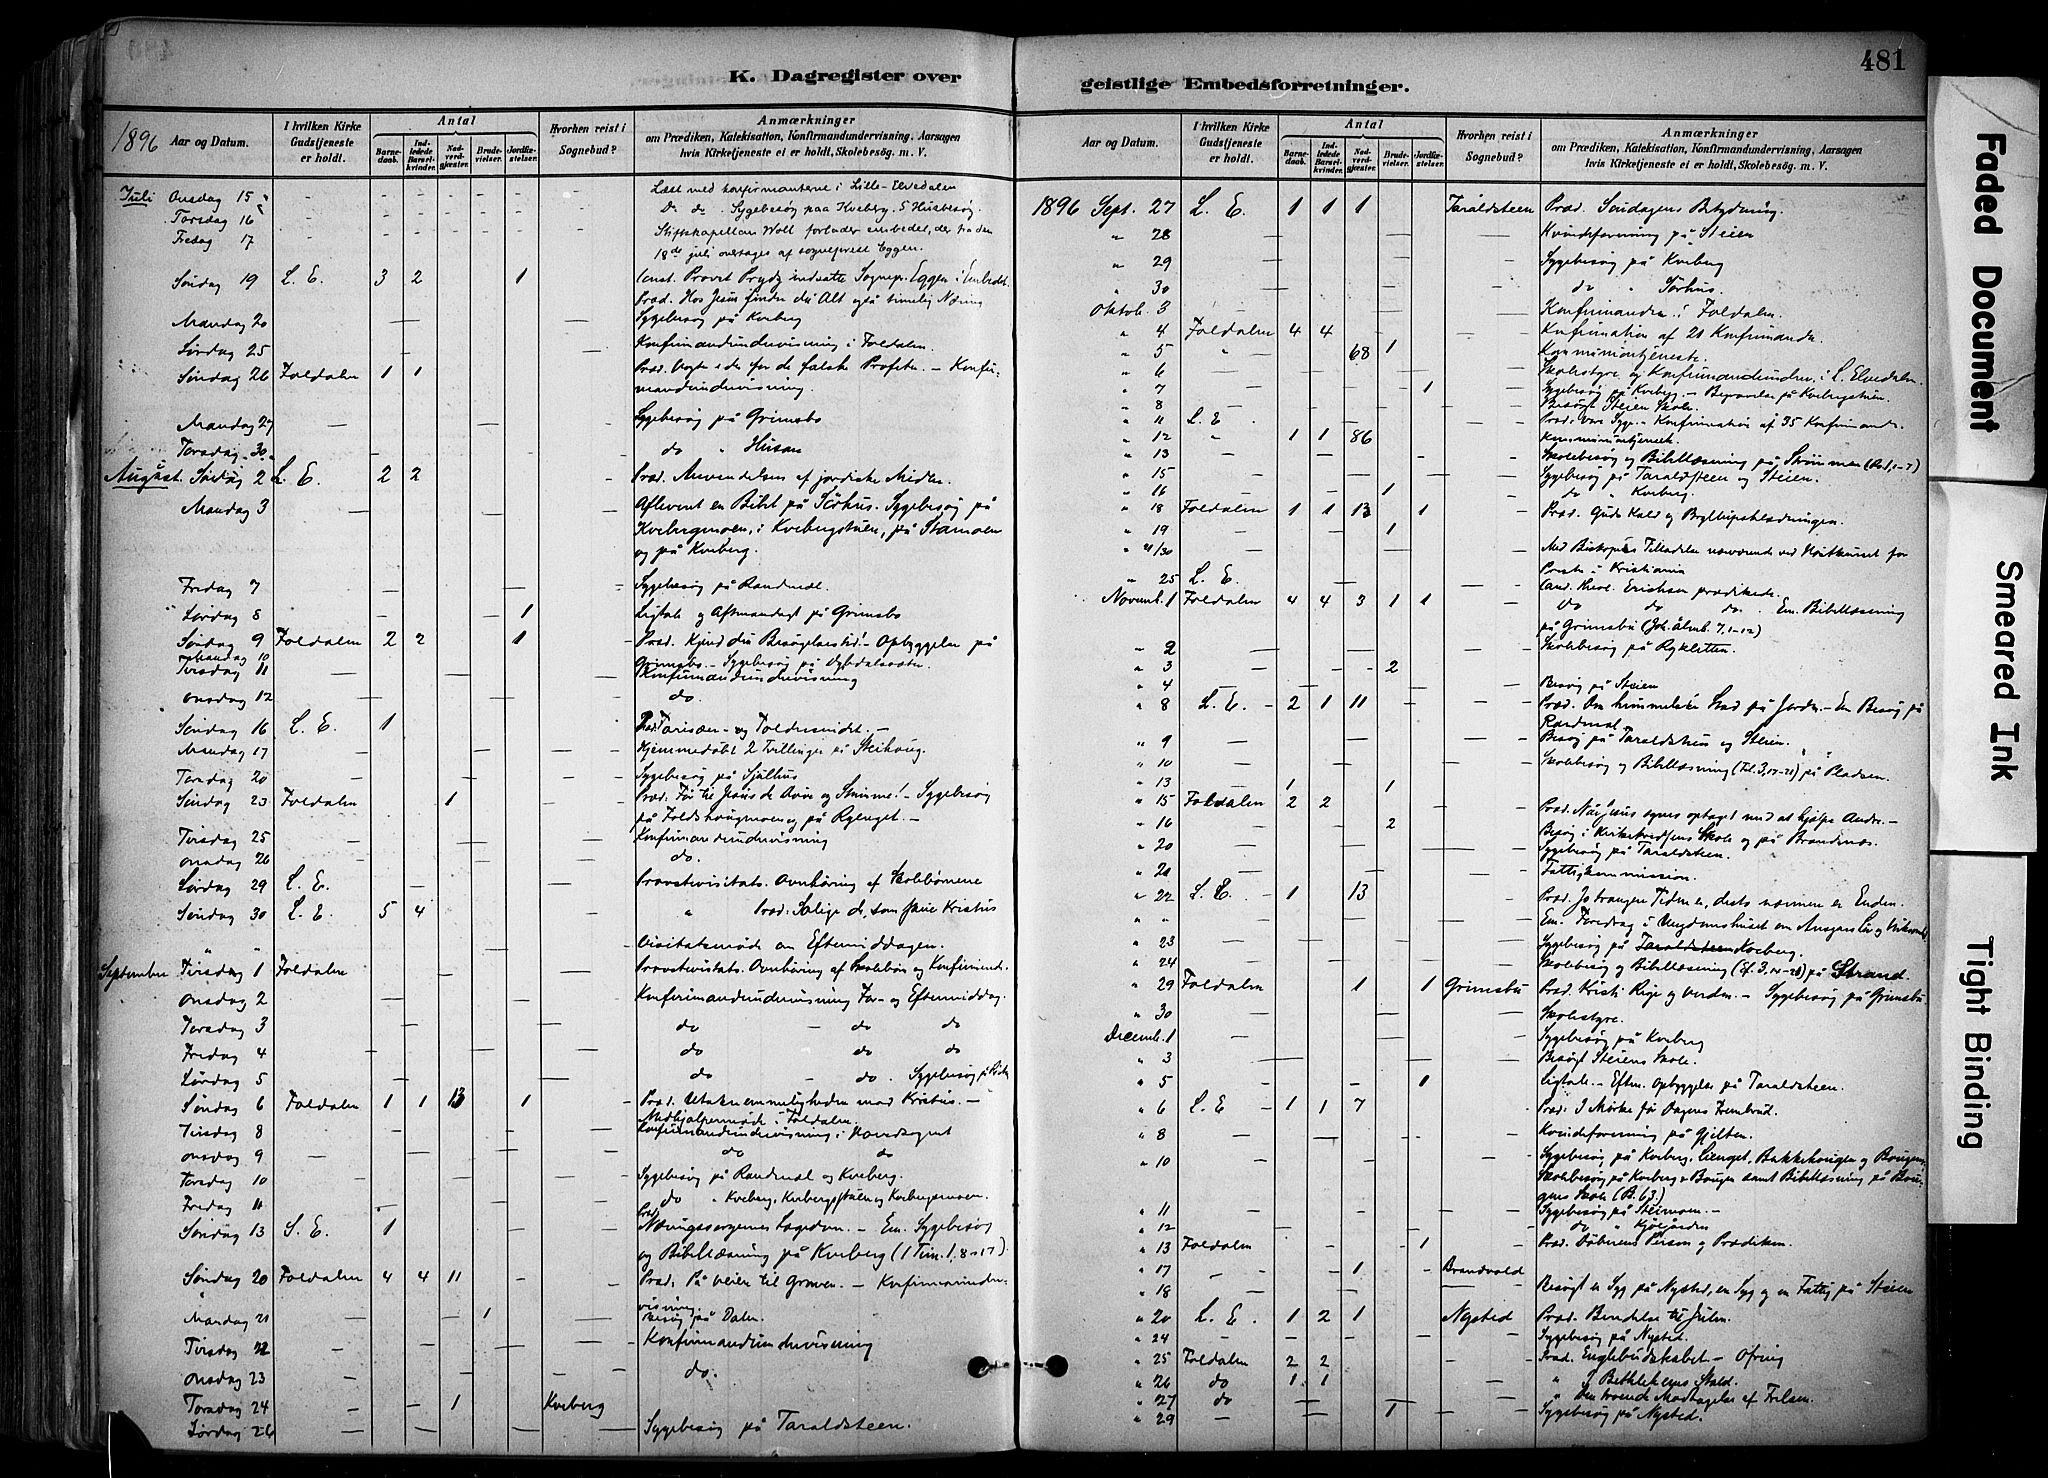 481
K. Dagregister over
geistlige Embedsforretninger.
1896 Aar og Datum.
I hvilken Kirke Gudstjeneste er holdt.
Antal
Barnedaab.
Indledede Barselkvinder.
Nadverdgjester.
Brudevielser.
Jordfæstelser.
Hvorhen reist i Sognebud?
Anmærkninger
om Prædiken, Katekisation, Konfirmandundervisning, Aarsagen
hvis Kirketjeneste ei er holdt, Skolebesøg. m. V.
Juli Onsdag 15 Læst med konfirmanterne i Lille-Elvedalen
Torsdag 16 Do do. Sygebesøg paa Kveberg. 5 Husbesøg.
Fredag 17 Stiftskapellan Woll forlader embedet, der fra den
18de juli overtages af sogneprest Eggen.
Søndag 19 L. E. 3 2 1 Const. Provst Prydz indsatte Sognepr. Eggen i Embedet.
Præd. Hos Jesus finder du Alt også timelig Næring
Mandag 20 Sygebesøg på Kveberg
Lørdag 25 Konfirmandundervisning i Foldalen.
Søndag 26 Foldalen 1 1 Præd. Vogter eder for de falske Profeter. - Konfir-
mandundervisning.
Mandag 27 Sygebesøg på Grimsbo
Torsdag 30 do " Husan
August Søndag 2 L. E. 2 2 Præd. Anvendelsen af jordiske Midler.
Mandag 3 Afleveret en Bibel på Sörhus. Sygebesøg på
Kvebergmoen, i Kvebergstuen, på Stamoen
og på Kveberg.
Fredag 7 Sygebesøg på Randmæl
Lørdag 8 1 Ligtale og Aftensandagt på Grimsbo
Søndag 9 Foldalen 2 2 1 Præd. Kjend du Besøgelsestid! - Opbyggelse på
Mandag 10 Grimsbo. - Sygebesøg på
Tirsdag 11 Konfirmandundervisning
Onsdag 12 do.
Søndag 16 L. E. 1 Præd. Farisæer- og Toldersindet. -
Mandag 17 Hjemmedøbt 2 Tvillinger på Steihaug.
Torsdag 20 Sygebesøg på Sjulhus
Søndag 23 Foldalen 1 Præd. Før til Jesus de Døve og Stumme! - Sygebesøg
på Foldshaugmoen og på Ryenget. -
Tirsdag 25 Konfirmandundervisning
Onsdag 26 do.
Lørdag 29 L. E. Provstevisitats. Overhøring af Skolebörnene
Søndag 30 L. E. 5 4 " Præd: Salige de, som have Kristus
" " Visitatsmøde om Eftermiddagen.
September Tirsdag 1 Foldalen Provstevisitats. Overhøring af Skolebörn og Konfirmand.
Onsdag 2 Konfirmandundervisning For- og Eftermiddag.
Torsdag 3 do - do do
Fredag 4 do do do
Lørdag 5 do - do. Sygebesøg på
Søndag 6 Foldalen 1 1 13 1 Præd. Utaknemmeligheden mod Kristus. -
Medhjælpermøde i Foldalen.
Tirsdag 8 Konfirmandundervisning i Hovedsognet
Onsdag 9 do do
Torsdag 10 Sygebesøg på Randmæl og Kveberg.
Fredag 11 do " Kveberg, Kvebergsstuen og Kvebergsmoen.
Søndag 13 L. E. 1 Præd. Næringssorgernes Lægedom. - Em. Sygebesøg
og Bibellæsning på Kveberg (1 Tim. 1, 8-17).
Søndag 20 Foldalen 4 4 11 Præd: På Veien til Graven. - Konfirmandunder-
visning.
Mandag 21 1 Besøg på Dalen.
Tirsdag 22 Konfirmandundervisning
Onsdag 23 do.
Torsdag 24 1 Kveberg
Lørdag 26 Sygebesøg på Taraldsteen.
Aar og Datum.
I hvilken Kirke Gudstjeneste er holdt.
Antal
Barnedaab.
Indledede Barselkvinder.
Nadverdgjester.
Brudevielser.
Jordfæstelser.
Hvorhen reist i Sognebud?
Anmærkninger
om Prædiken, Katekisation, Konfirmandundervisning, Aarsagen
hvis Kirketjeneste ei er holdt, Skolebesøg. m. V.
1896 Sept. 27 L. E. 1 1 1 Taraldsteen Præd. Søndagens Betydning.
" 28 Kvindeforening på Steien
" 29 Sygebesøg på Kveberg
" 30 do " Sörhus.
Oktob. 3 Konfirmander i Foldalen.
" 4 Foldalen 4 4 Konfirmation af 21 Konfirmander.
" 5 " 68 1 Kommuniontjeneste.
" 6 Skolestyre og Konfirmandunderv. i L. Elvedalen.
" 7 1 Sygebesøg på Kveberg. - Begravelse på Kvebergstuen.
" 8 Besøgt Steien Skole.
" 11 L. E Præd. Vore Syge. - Konfirmation af 35 Konfirmander.
" 12 " 1 1 86 Kommuniontjeneste.
" 13 Skolebesøg og Bibellæsning på Strömmen
" 15 Sygebesøg på Taraldsteen og Steien.
" 16 1 do " Kveberg.
" 18 Foldalen 1 1 13 1 Præd. Guds Kald og Bryllupsklædningen.
" 19 1
" 21/30 Med Biskopens Tilladelse nærværende ved Høstkurset for
Prester i Kristiania
" 25 L. E. Cand. theol. Erichsen prædikede.
Novemb. 1 Foldalen 4 4 3 1 1 do do do. Em. Bibellæsning
på Grimsbu (Joh. Åbenb. 7, 1-12)
" 2 Skolebesøg på Ryhletten
" 3 2
" 4 Besøg på Steien
" 8 L. E. 2 1 11 Præd. Om himmelske Skat på Jorden. - Em Besøg på
Randmæl.
" 9 Besøg på Taraldsteen og Steien.
" 10 Skolebesøg og Bibellæsning på Pladsen.
" 13 1 1
" 15 Foldalen 2 2 Præd. Når Jesus synes optaget med at hjælpe Andre. -
" 16 2 Besøg i Kirkekredsens Skole og på Brandsnæs.
" 20 Sygebesøg på Taraldsteen.
" 21 Fattigkommission.
" 22 L. E. 1 13 Præd. Jo trangere Tiden er, desto nærmere er Enden.
" " Em. Foredrag i Ungdomshuset om Ansgars Liv og Virksomhed
" 23 Sygebesøg på Taraldsteen Kveberg.
" 24 Skolebesøg og Bibellæsning på Strand.
" 29 Foldalen 1 1 Grimsbu Præd. Kristi Rige og Verden. - Sygebesøg på Grimsbu
" 30 Skolestyre.
Decemb. 1 Sygebesøg på Kveberg
" 3 Besøgt Steiens Skole.
" 5 1 Ligtale. - Efterm. Opbyggelse på Taraldsteen.
" 6 L. E 1 1 7 Præd. I Mørke før Dagens Frembrud.
" 8 Kvindeforening på Gjelten.
" 10 Sygebesøg på Kveberg, Lienget, Bakkehaugen og Baugen.
Skolebesøg på Kveberg og Baugen samt Bibellæsning på Bau-
gens Skole (B. 63.)
" 11 Sygebesøg på Steimoen. -
" 12 do "
" 13 Foldalen 1 Præd. Døberens Person og Prædiken.
" 17 1 Brandvold
" 18 Besøgt en Syg på Nysted, en Syg og en Fattig på Steien
" 20 L. E 1 2 1 Nysted Præd. Beredelse til Julen.
" 24 Sygebesøg på Nysted.
" 25 Foldalen 2 2 Præd. Englebudskabet. - Ofring
" 26 do 1 1 " I Bethlehems Stald.
" 27 do " Den troende Modtagelse af Frelsen.
" 29 1 Sygebesøg på Nysted.
Faded Document
Smeared Ink
Tight Binding